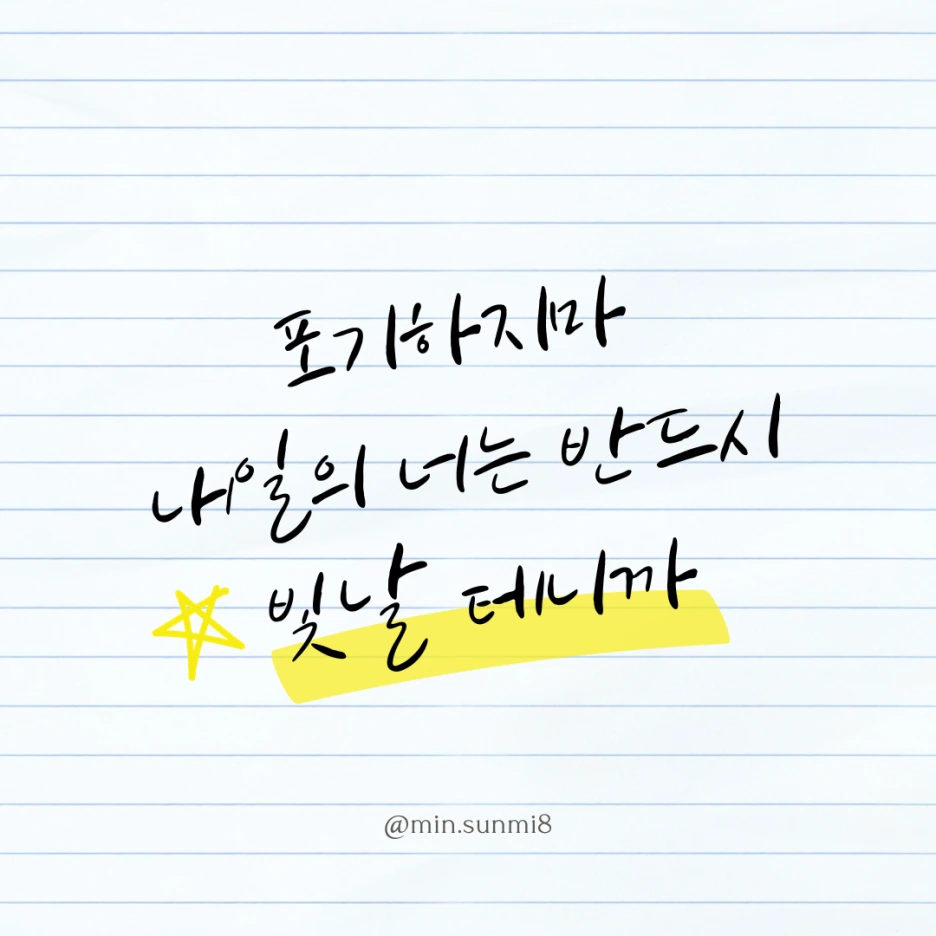 포기하지마
내일의 너는 반드시
빛날 테니까
@min.sunmi8